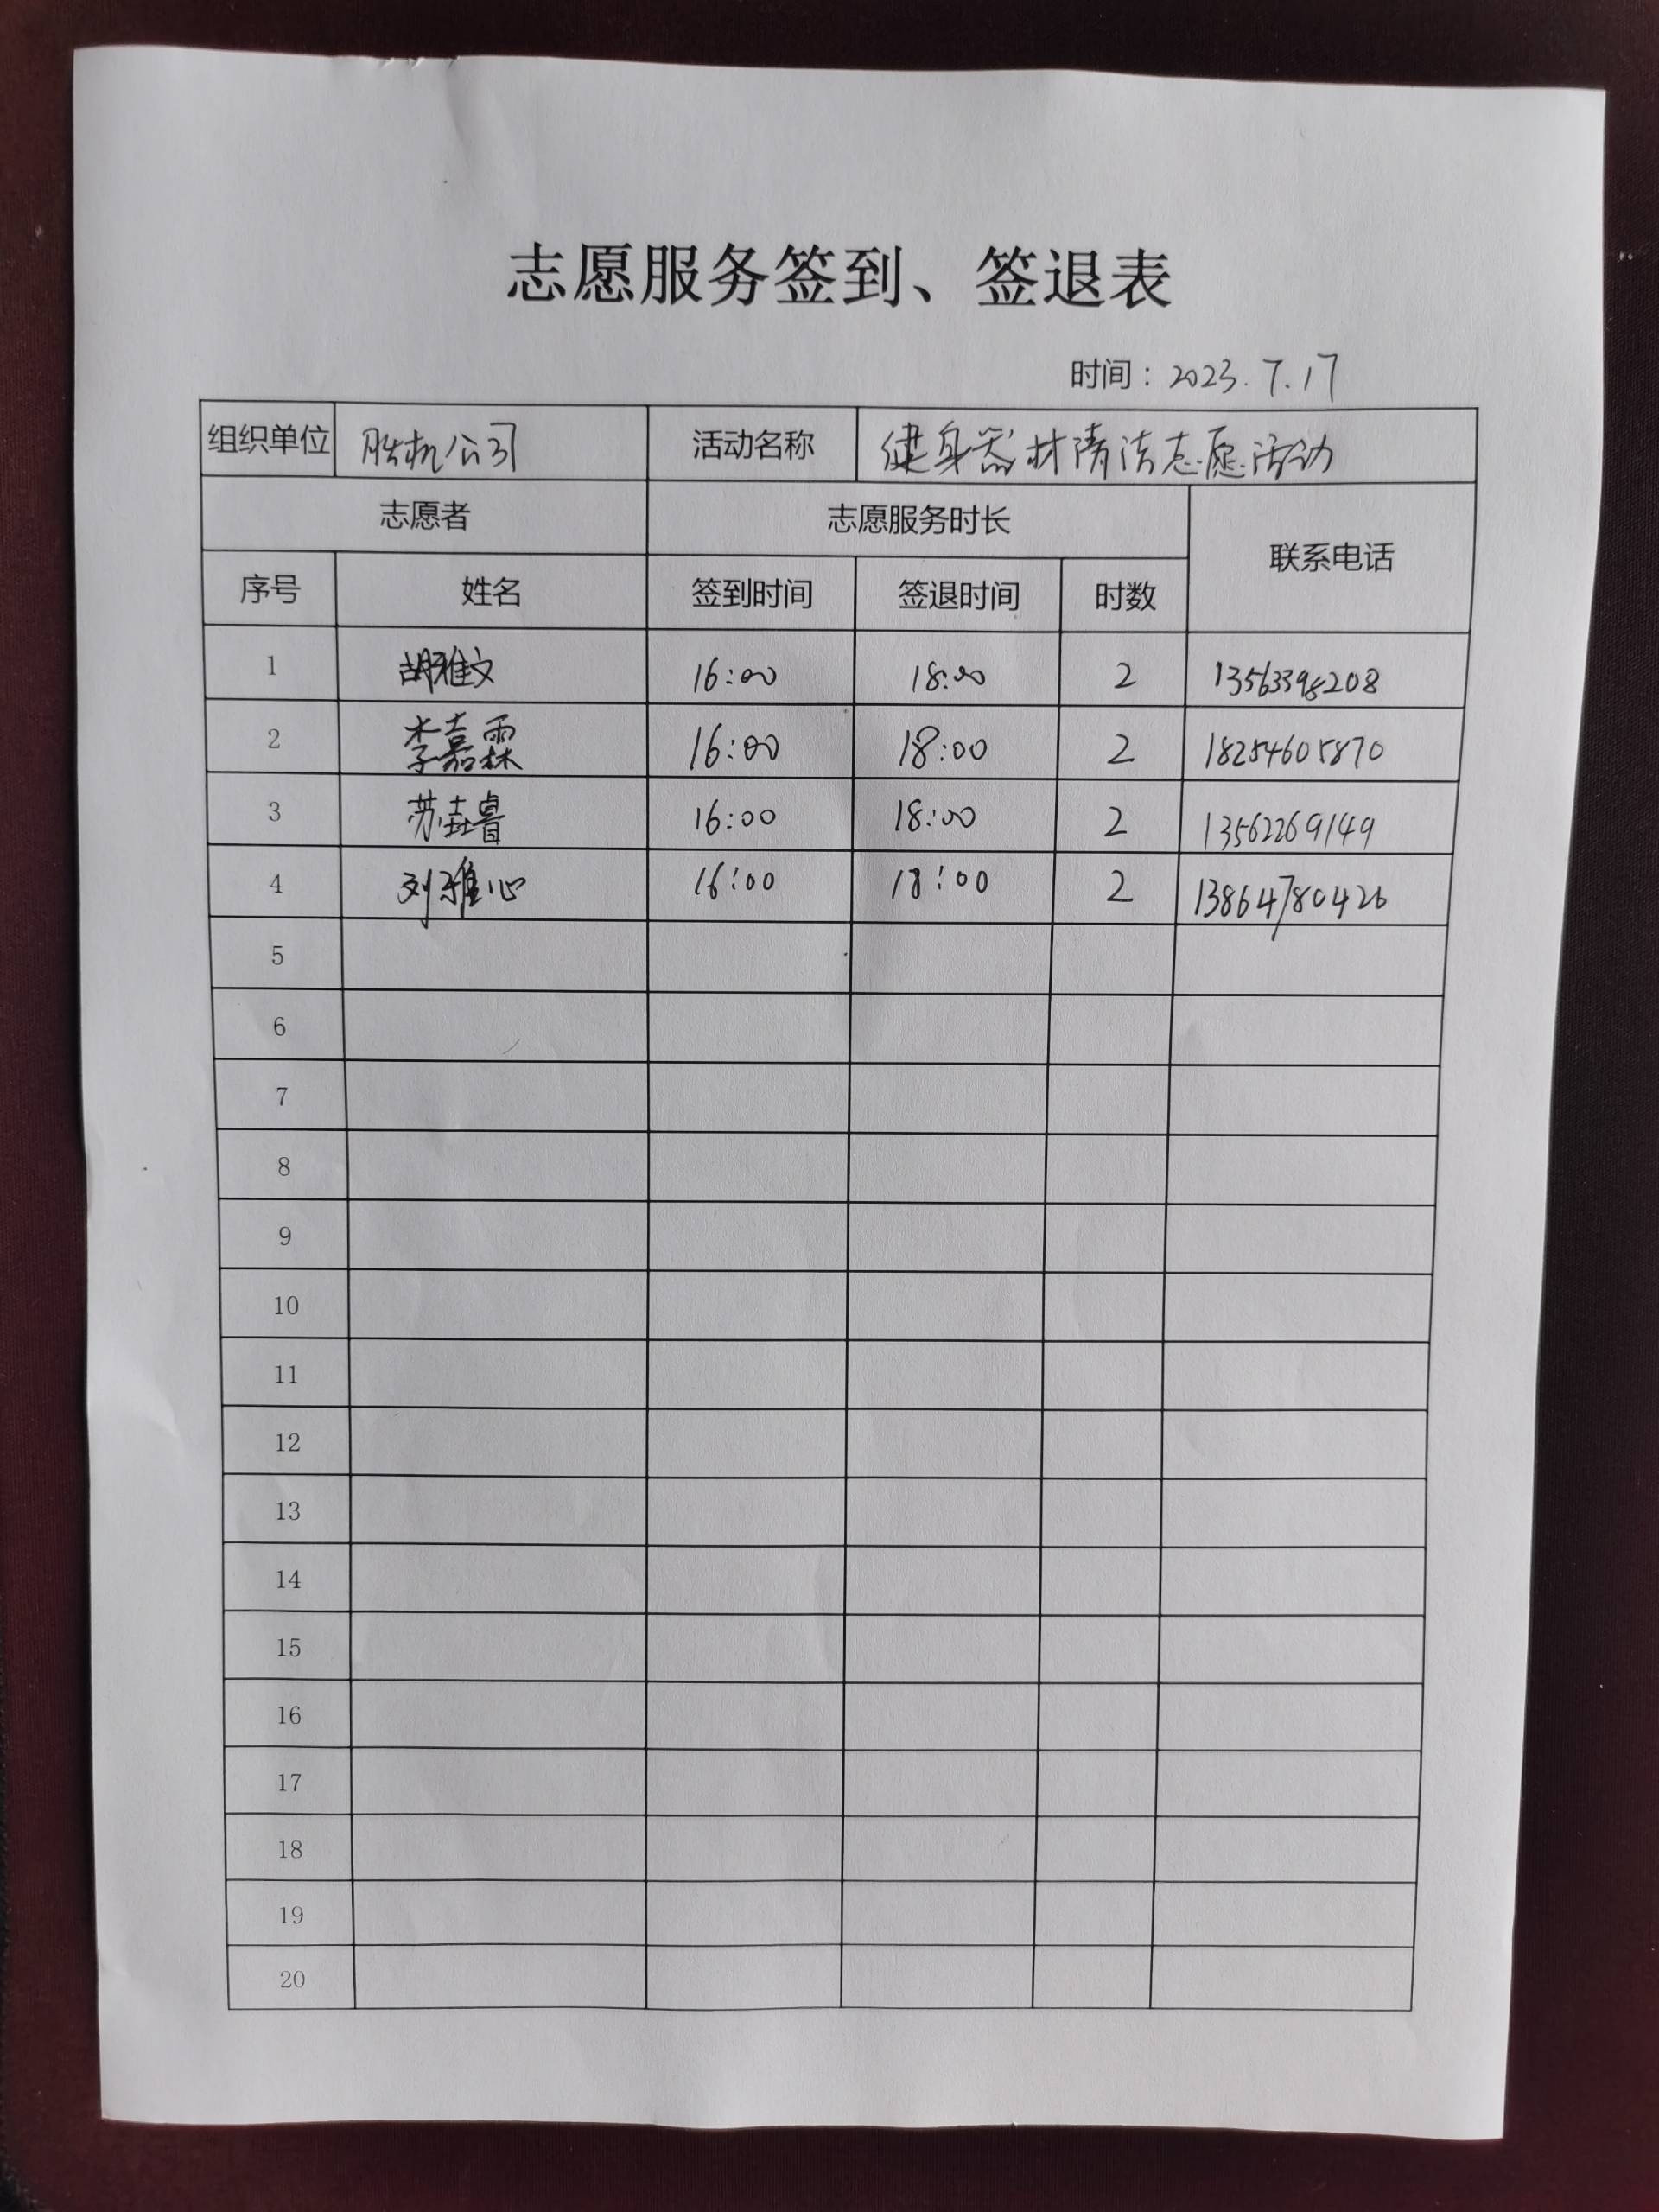 志愿服务签到、签退表
时间：2023.7.17
组织单位 胜机公司 活动名称 健身器材清洁志愿活动
志愿者 志愿服务时长 联系电话
序号 姓名 签到时间 签退时间 时数
1 胡雅文 16:00 18:00 2 13563398208
2 李嘉霖 16:00 18:00 2 18254605870
3 苏垚睿 16:00 18:00 2 13562269149
4 刘雅心 16:00 18:00 2 13864780426
5
6
7
8
9
10
11
12
13
14
15
16
17
18
19
20